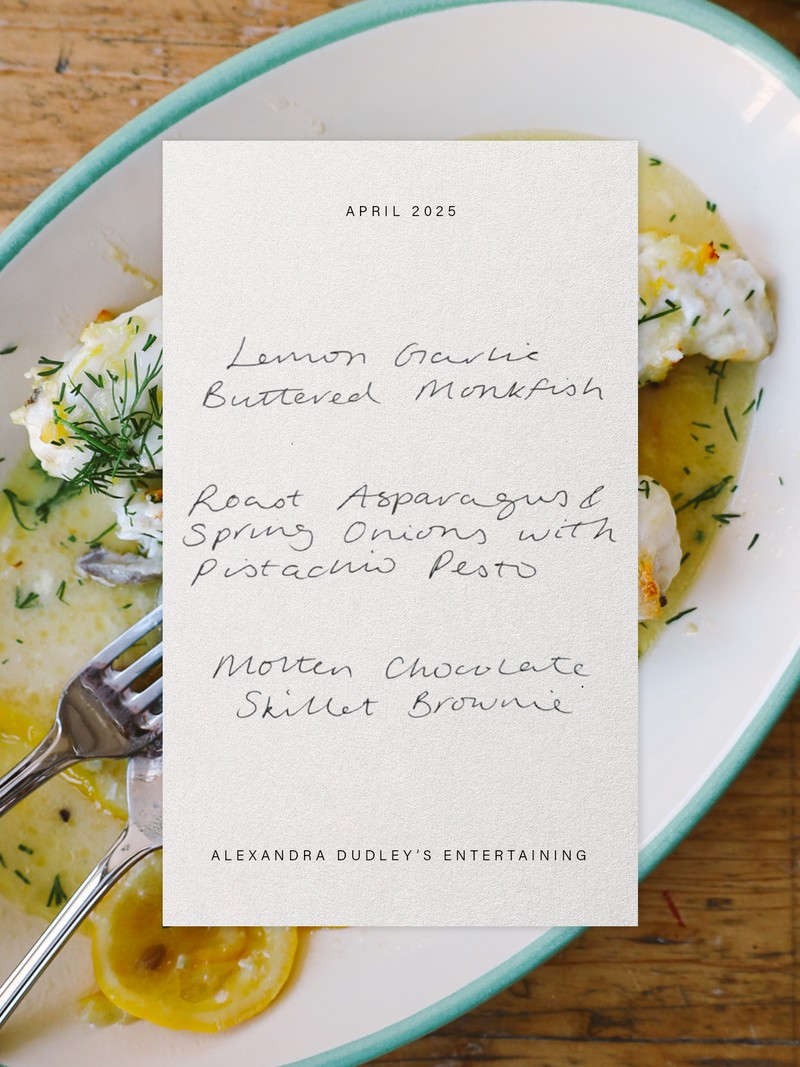 APRIL 2025
Lemon Garlic
Buttered Monkfish
Roast Asparagus &
Spring Onions with
Pistachio Pesto
Molten Chocolate
Skillet Brownie
ALEXANDRA DUDLEY'S ENTERTAINING